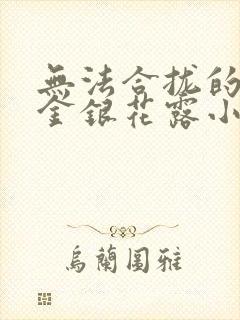 無法合拢的
金銀花露小
烏蘭圖雅